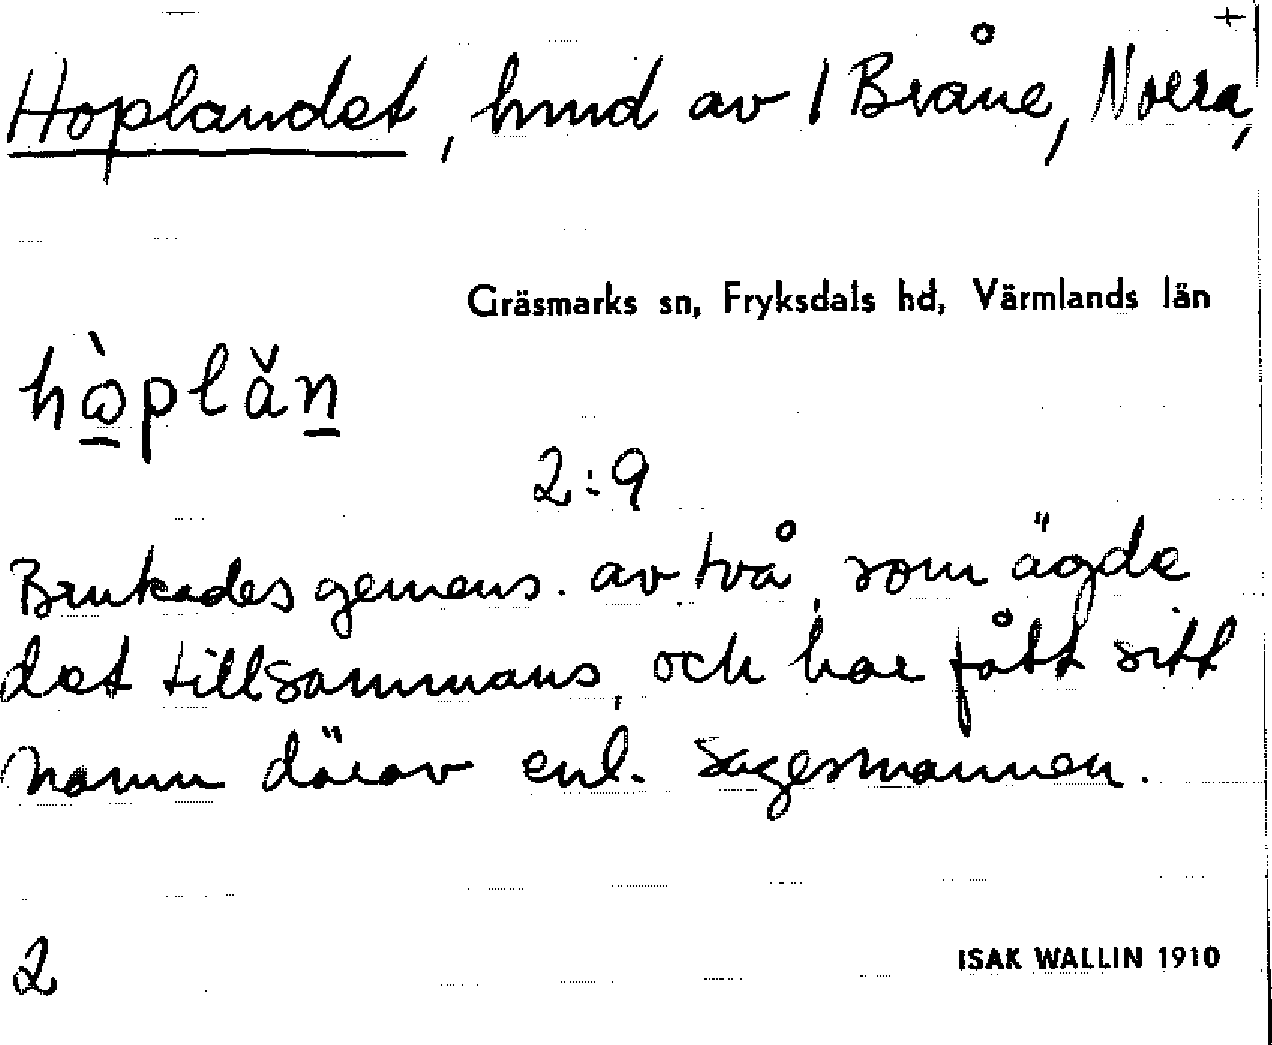 +
Hoplandet, hmd av 1 Bråne, Norra,
Gräsmarks sn, Fryksdals hd, Värmlands län
hòplăn
2:9
Brukades gemens. av två, som ägde
det tillsammans, och har fått sitt
namn därav enl. sagesmannen.
2
ISAK WALLIN 1910